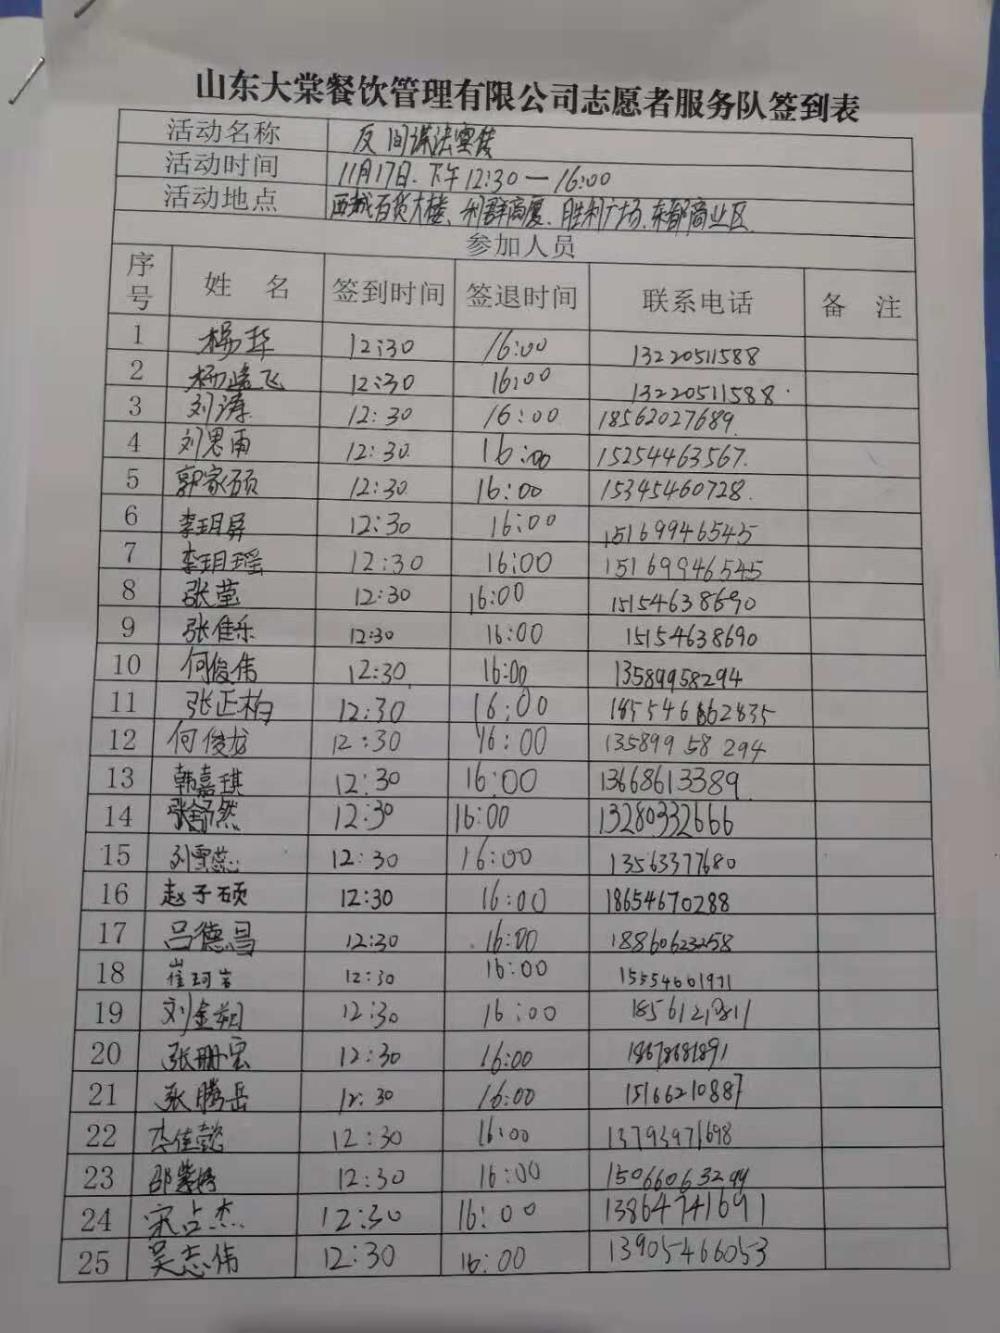 山东大棠餐饮管理有限公司志愿者服务队签到表
活动名称 反间谍法宣传
活动时间 11月17日.下午12:30—16:00
活动地点 西城百货大楼、利群商厦、胜利广场、东都商业区
参加人员
序号 姓 名 签到时间 签退时间 联系电话 备 注
1 杨华 12:30 16:00 13220511588
2 12:30 16:00 13220511588.
3 刘涛 12:30 16:00 18562027689.
4 刘思雨 12:30 16:00 15254463567.
5 郭家硕 12:30 16:00 15345460728.
6 李玥屏 12:30 16:00 15169946545
7 李玥瑶 12:30 16:00 15169946545
8 张莹 12:30 16:00 15154638690
9 张佳乐 12:30 16:00 15154638690
10 何俊伟 12:30 16:00 13589958294
11 张正柏 12:30 16:00
12 何俊龙 12:30 16:00 135899 58 294
13 韩嘉琪 12:30 16:00 13668613389.
14 张舒然 12:30 16:00 13280332666
15 刘雯蕊 12:30 16:00 13563377680
16 赵子硕 12:30 16:00 18654670288
17 吕德昌 12:30 16:00 18860623258
18 崔珂岩 12:30 16:00 15554601971
19 刘金朔 12:30 16:00
20 张珊宏 12:30 16:00 18678681891
21 张腾岳 12:30 16:00 15166210887
22 李佳懿 12:30 16:00 13793971698
23 邵紫婷 12:30 16:00 15066063299
24 宋占杰 12:30 16:00 13864741691
25 吴志伟 12:30 16:00 13905466053